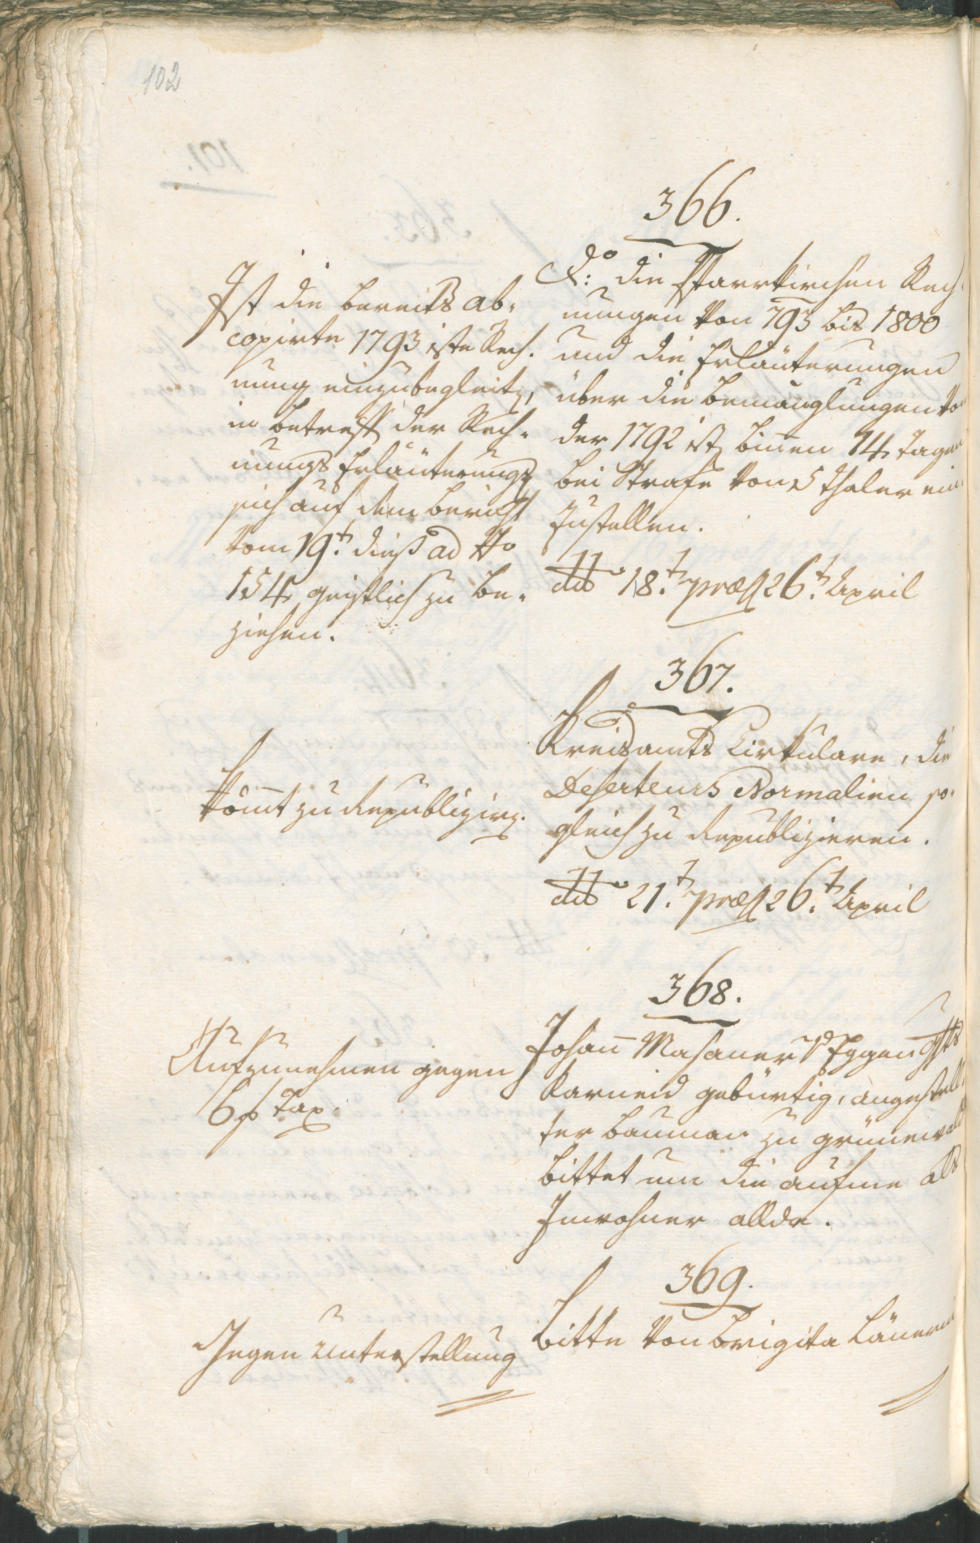 102
366.
Ist die bereits ab-
copirte 1793iste Rech-
nung einzubegleit,
in betreff der Rech-
nungs Erläuterung
sich auf den Bericht
vom 19t. dieß ad No
154 geistlich zu be-
ziehen.
do: die Pfarrkirchen Rech-
nungen von 793 bis 1800
und die Erläuterungen
über die Bemänglungen von
der 1792ist binnen 14 Tagen
bei Strafe von 5 Thaler ein-
zustellen.
dto 18.t præs 26.t April
367.
Kömt zu Republizirn.
Kreisamts Cirkulare, die
Deserteurs Normalien so-
gleich zu Republizieren.
dto 21.t præs 26.t April
368.
Aufzunehmen gegen
6 f Tax.
Johann Masaner v Eggen Ghts
Karneid gebürtig, angestell-
ter Bauman zu Grünewald
bittet um die Aufnme als
Inwohner allda.
369.
Gegen Unterstellung
Bitte von Brigita